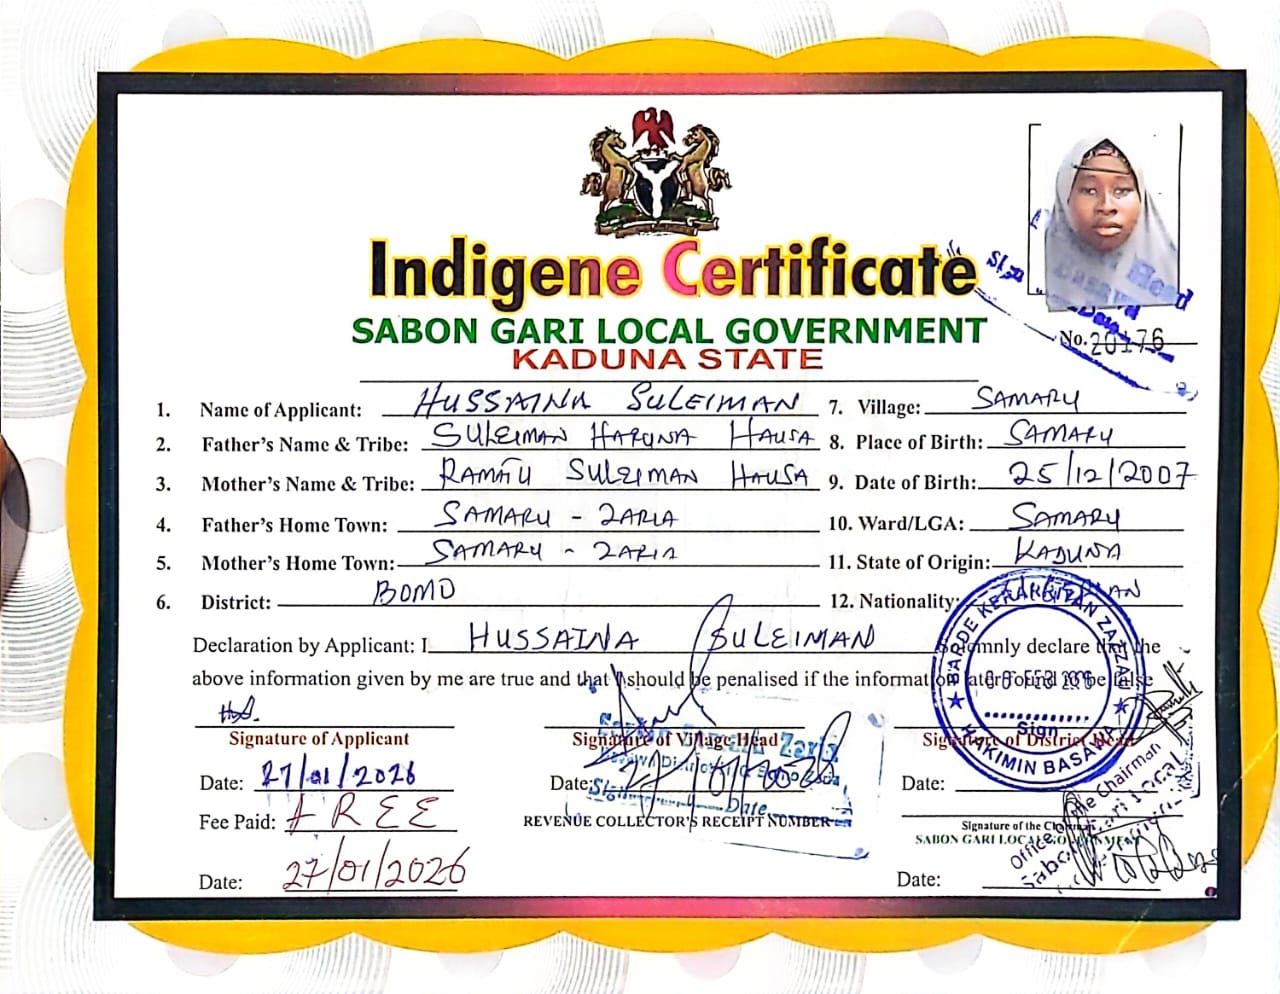 Indigene Certificate
SABON GARI LOCAL GOVERNMENT
KADUNA STATE
No. 20176
1. Name of Applicant: HUSSAINA SULEIMAN
2. Father's Name & Tribe: SULEIMAN HARUNA HAUSA
3. Mother's Name & Tribe: RAMATU SULEIMAN HAUSA
4. Father's Home Town: SAMARU - ZARIA
5. Mother's Home Town: SAMARU - ZARIA
6. District: BOMO
7. Village: SAMARU
8. Place of Birth: SAMARU
9. Date of Birth: 25/12/2007
10. Ward/LGA: SAMARU
11. State of Origin: KADUNA
12. Nationality:
Declaration by Applicant: I HUSSAINA SULEIMAN Solemnly declare that the
above information given by me are true and that I should be penalised if the information later found to be false
Signature of Applicant
Date: 27/01/2026
Fee Paid: FREE
Date: 27/01/2026
Signature of Village Head
Date: 27/01/2026
Zaria
Sign
Date
REVENUE COLLECTOR'S RECEIPT NUMBER
Signature of District Head
BARDE KERARRIYAN ZAZZAU
Sign
HAKIMIN BASAWA
Date:
Signature of the Chairman
SABON GARI LOCAL GOVERNMENT
Office of the Chairman
Sabon Gari Local
Date: